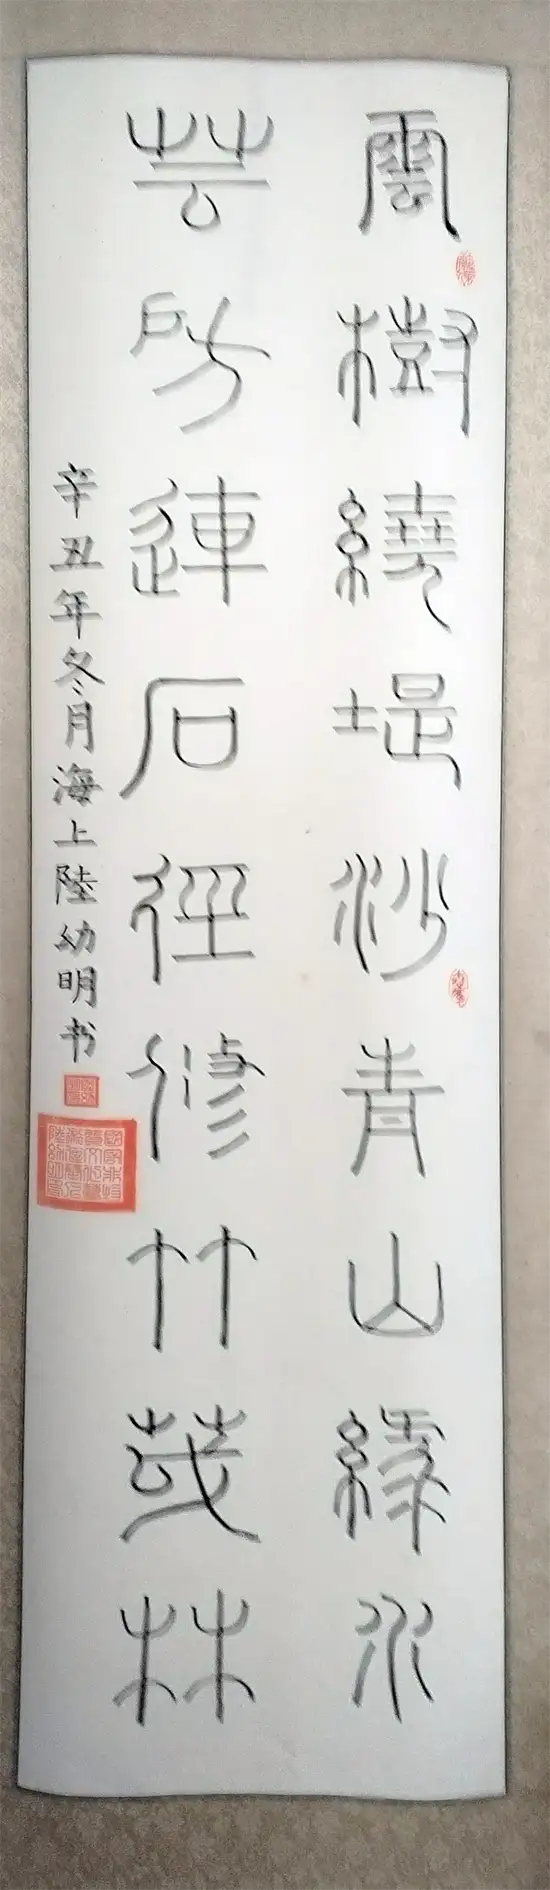 雲樹繞堤沙青山綠水
芸房連石徑修竹茂林
辛丑年冬月海上陸幼明书